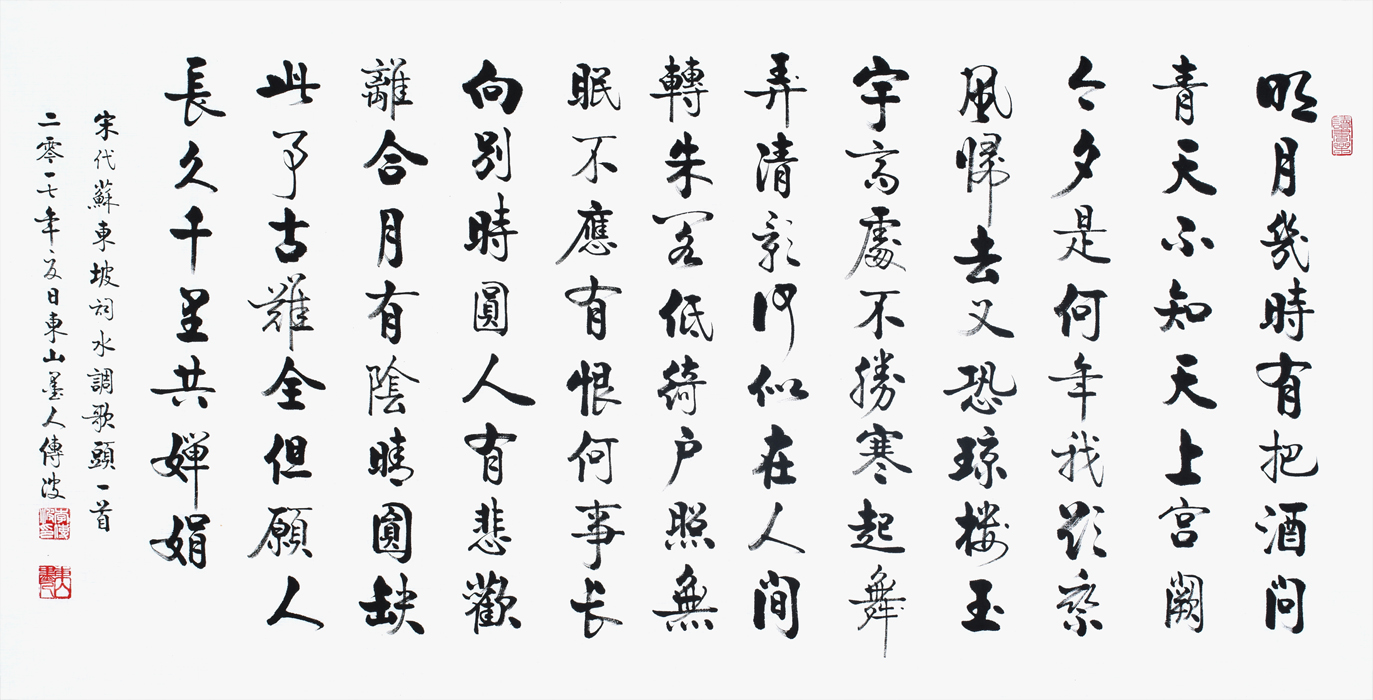 明月幾時有把酒問
青天不知天上宮闕
今夕是何年我欲乘
風歸去又恐琼楼玉
宇高處不勝寒起舞
弄清影何似在人間
轉朱閣低綺户照無
眠不應有恨何事长
向別時圓人有悲歡
離合月有陰晴圓缺
此事古難全但願人
長久千里共嬋娟
宋代蘇東坡詞水調歌頭一首
二零一七年夏日東山墨人傳波